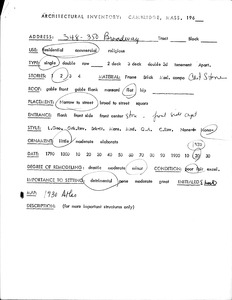 ARCHITECTURAL INVENTORY: CAMBRIDGE, MASS. 196
ADDRESS: 348-350 Broadway Tract Block
USE: residential commercial religious
TYPE: single double row 2 deck 3 deck double 3d tenement Apart.
STORIES: 1 2 3 4 MATERIAL: Frame Brick Stone
ROOF: gable front gable flank mansard flat hip
PLACEMENT: narrow to street broad to street square
ENTRANCE: flank front side front center
STYLE:
ORNAMENT: little moderate elaborate
DATE: 1790 1800 10 20 30 40 50 60 70 80 90 1900 10 20 30
DEGREE OF REMODELING: drastic moderate minor CONDITION: poor fair excel.
IMPORTANCE TO SETTING: detrimental some moderate great
MAP: 1930 Atlas
DESCRIPTION: (for more important structures only)